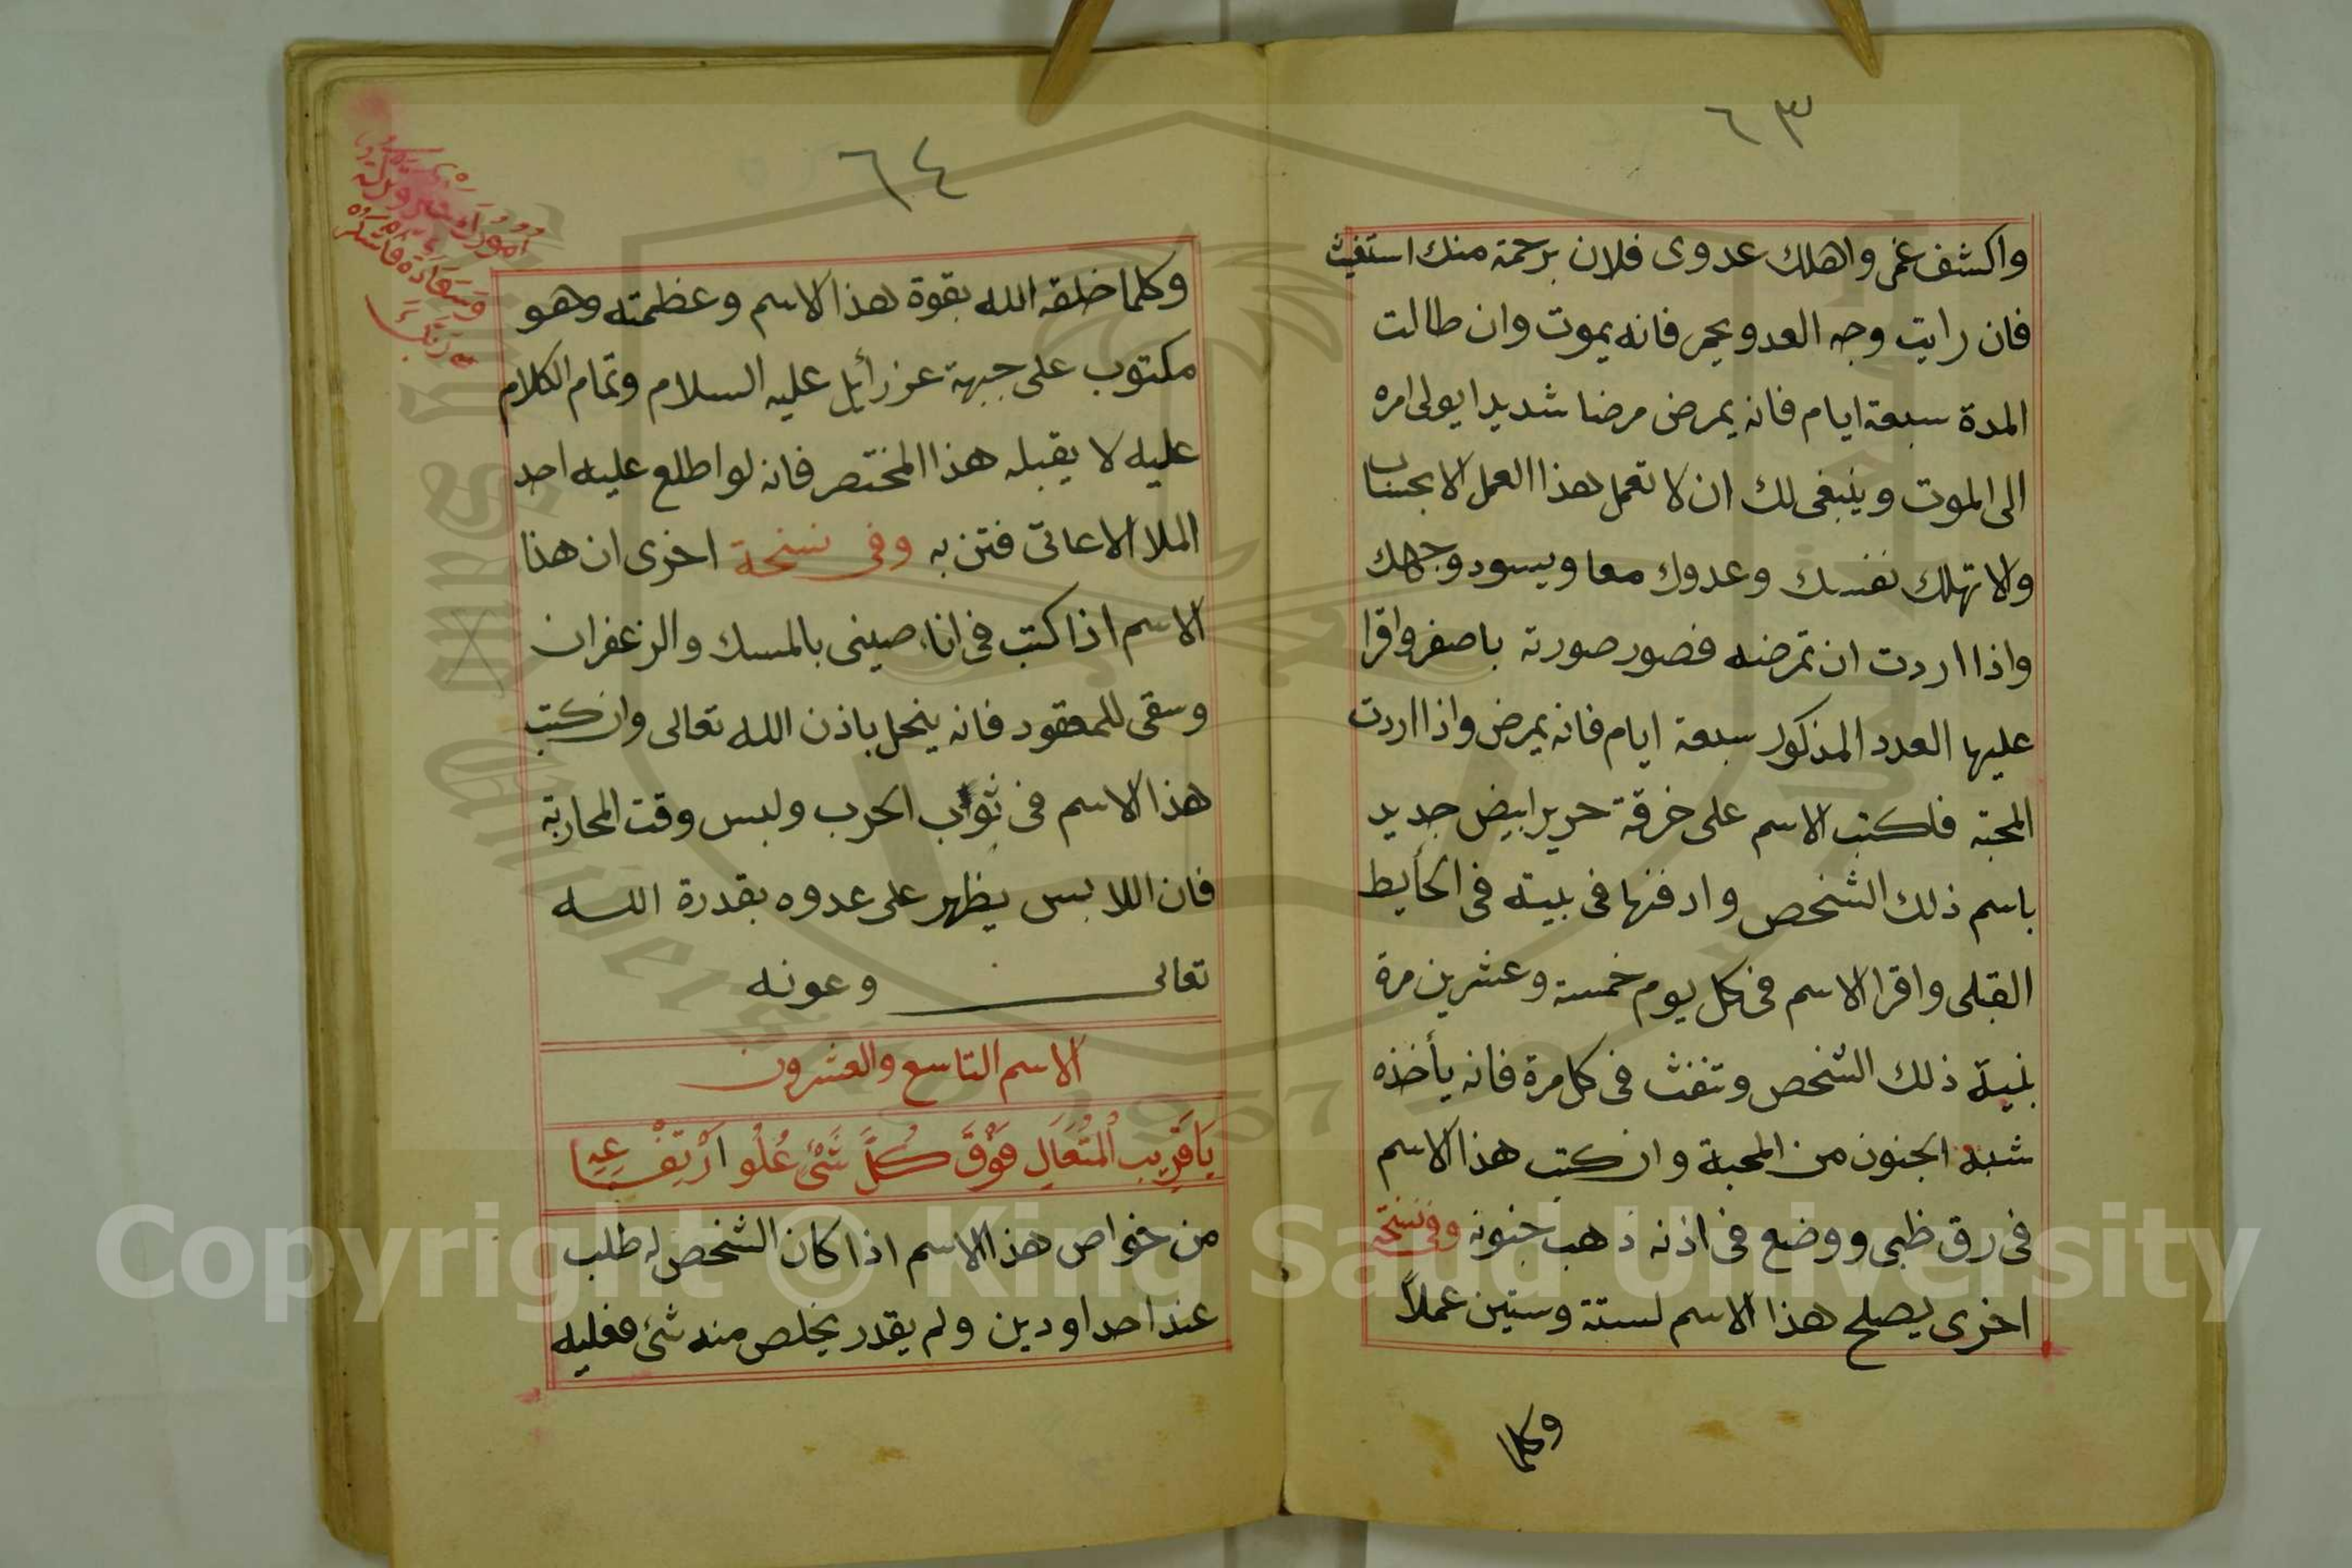 ٦٣
واكشف غمى واهلك عدوى فلان برحمة منك استغيث
فان رايت وجه العدو يحمر فانه يموت وان طالت
المدة سبعة ايام فانه يمرض مرضا شديدا يولى امره
الى الموت وينبغى لك ان لا تعمل هذا العمل الا بحساب
ولا تهلك نفسك وعدوك معا ويسود وجهك
واذا اردت ان تمرضه فصور صورته باصفر واقرا
عليها العدد المذكور سبعة ايام فانه يمرض واذا اردت
المحبه فلكتب الاسم على خرقة حرير ابيض جديد
باسم ذلك الشخص وادفنها فى بيته فى الحأيط
القبلى واقرا الاسم فى كل يوم خمسة وعشرين مرة
بنية ذلك الشخص وتنفث فى كل مرة فانه يأخذه
شبه الجنون من المحبة وان كتب هذا الاسم
فى رق ظبى ووضع فى اذنه ذهب جنونه وفى نسخة
اخرى يصلح هذا الاسم لستة وستين عملاً
وكلما
٦٤
وكلما خلقه الله بقوة هذا الاسم وعظمته وهو
مكتوب على جبهة عزرأيل عليه السلام وتمام الكلام
عليه لا يقبله هذا المختصر فانه لو اطلع عليه احد
الملا الاعاتى فتن به وفى نسخة اخرى ان هذا
الاسم اذا كتب فى اناء صينى بالمسك والزعفران
وسقى للمعقود فانه ينحل باذن الله تعالى وان كتب
هذا الاسم فى ثواب الحرب ولبس وقت المحاربة
فان اللابس يظهر على عدوه بقدرة الله
تعالى وعونه
الاسم التاسع والعشرون
يَا قَرِيب الْمُتَعَالِ فَوْقَ كُلَّ شَئْ عُلُو ارْتِفَاعِهِ يا
من خواص هذا الاسم اذا كان الشخص له طلب
عند احد او دين ولم يقدر يخلص منه شئ فعليه